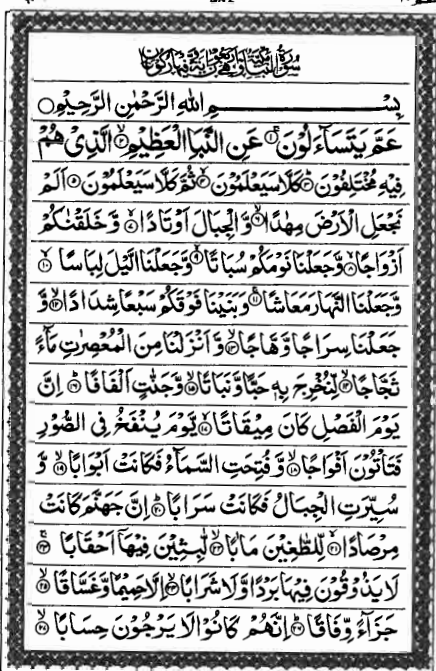 سُوْرَةُ النَّبَاِ مَكِّيَّةٌ وَّهِيَ اَرْبَعُوْنَ اٰيَةً وَّفِيْهَا رُكُوْعَانِ
بِسْمِ اللّٰهِ الرَّحْمٰنِ الرَّحِيْمِ
عَمَّ يَتَسَآءَلُوْنَ ۝۱ عَنِ النَّبَاِ الْعَظِيْمِ ۝۲ الَّذِيْ هُمْ
فِيْهِ مُخْتَلِفُوْنَ ۝۳ كَلَّا سَيَعْلَمُوْنَ ۝۴ ثُمَّ كَلَّا سَيَعْلَمُوْنَ ۝۵ اَلَمْ
نَجْعَلِ الْاَرْضَ مِهٰدًا ۝۶ وَّالْجِبَالَ اَوْتَادًا ۝۷ وَّخَلَقْنٰكُمْ
اَزْوَاجًا ۝۸ وَّجَعَلْنَا نَوْمَكُمْ سُبَاتًا ۝۹ وَّجَعَلْنَا الَّيْلَ لِبَاسًا ۝۱۰
وَّجَعَلْنَا النَّهَارَ مَعَاشًا ۝۱۱ وَّبَنَيْنَا فَوْقَكُمْ سَبْعًا شِدَادًا ۝۱۲ وَّ
جَعَلْنَا سِرَاجًا وَّهَّاجًا ۝۱۳ وَّاَنْزَلْنَا مِنَ الْمُعْصِرٰتِ مَآءً
ثَجَّاجًا ۝۱۴ لِّنُخْرِجَ بِهٖ حَبًّا وَّنَبَاتًا ۝۱۵ وَّجَنّٰتٍ اَلْفَافًا ۝۱۶ اِنَّ
يَوْمَ الْفَصْلِ كَانَ مِيْقَاتًا ۝۱۷ يَّوْمَ يُنْفَخُ فِي الصُّوْرِ
فَتَاْتُوْنَ اَفْوَاجًا ۝۱۸ وَّفُتِحَتِ السَّمَآءُ فَكَانَتْ اَبْوَابًا ۝۱۹ وَّ
سُيِّرَتِ الْجِبَالُ فَكَانَتْ سَرَابًا ۝۲۰ اِنَّ جَهَنَّمَ كَانَتْ
مِرْصَادًا ۝۲۱ لِّلطَّٰغِيْنَ مَاٰبًا ۝۲۲ لّٰبِثِيْنَ فِيْهَآ اَحْقَابًا ۝۲۳
لَا يَذُوْقُوْنَ فِيْهَا بَرْدًا وَّلَا شَرَابًا ۝۲۴ اِلَّا حَمِيْمًا وَّغَسَّاقًا ۝۲۵
جَزَآءً وِّفَاقًا ۝۲۶ اِنَّهُمْ كَانُوْا لَا يَرْجُوْنَ حِسَابًا ۝۲۷